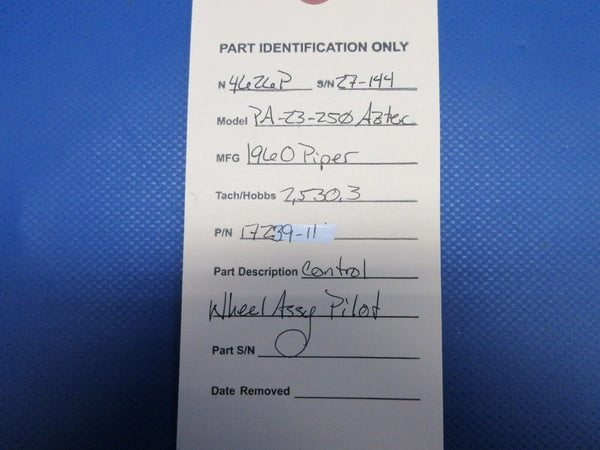 PART IDENTIFICATION ONLY
N 4626P S/N 27-144
Model PA-23-250 Aztec
MFG 1960 Piper
Tach/Hobbs 2,530.3
P/N 17239-11
Part Description Control
Wheel Assy Pilot
Part S/N
Date Removed